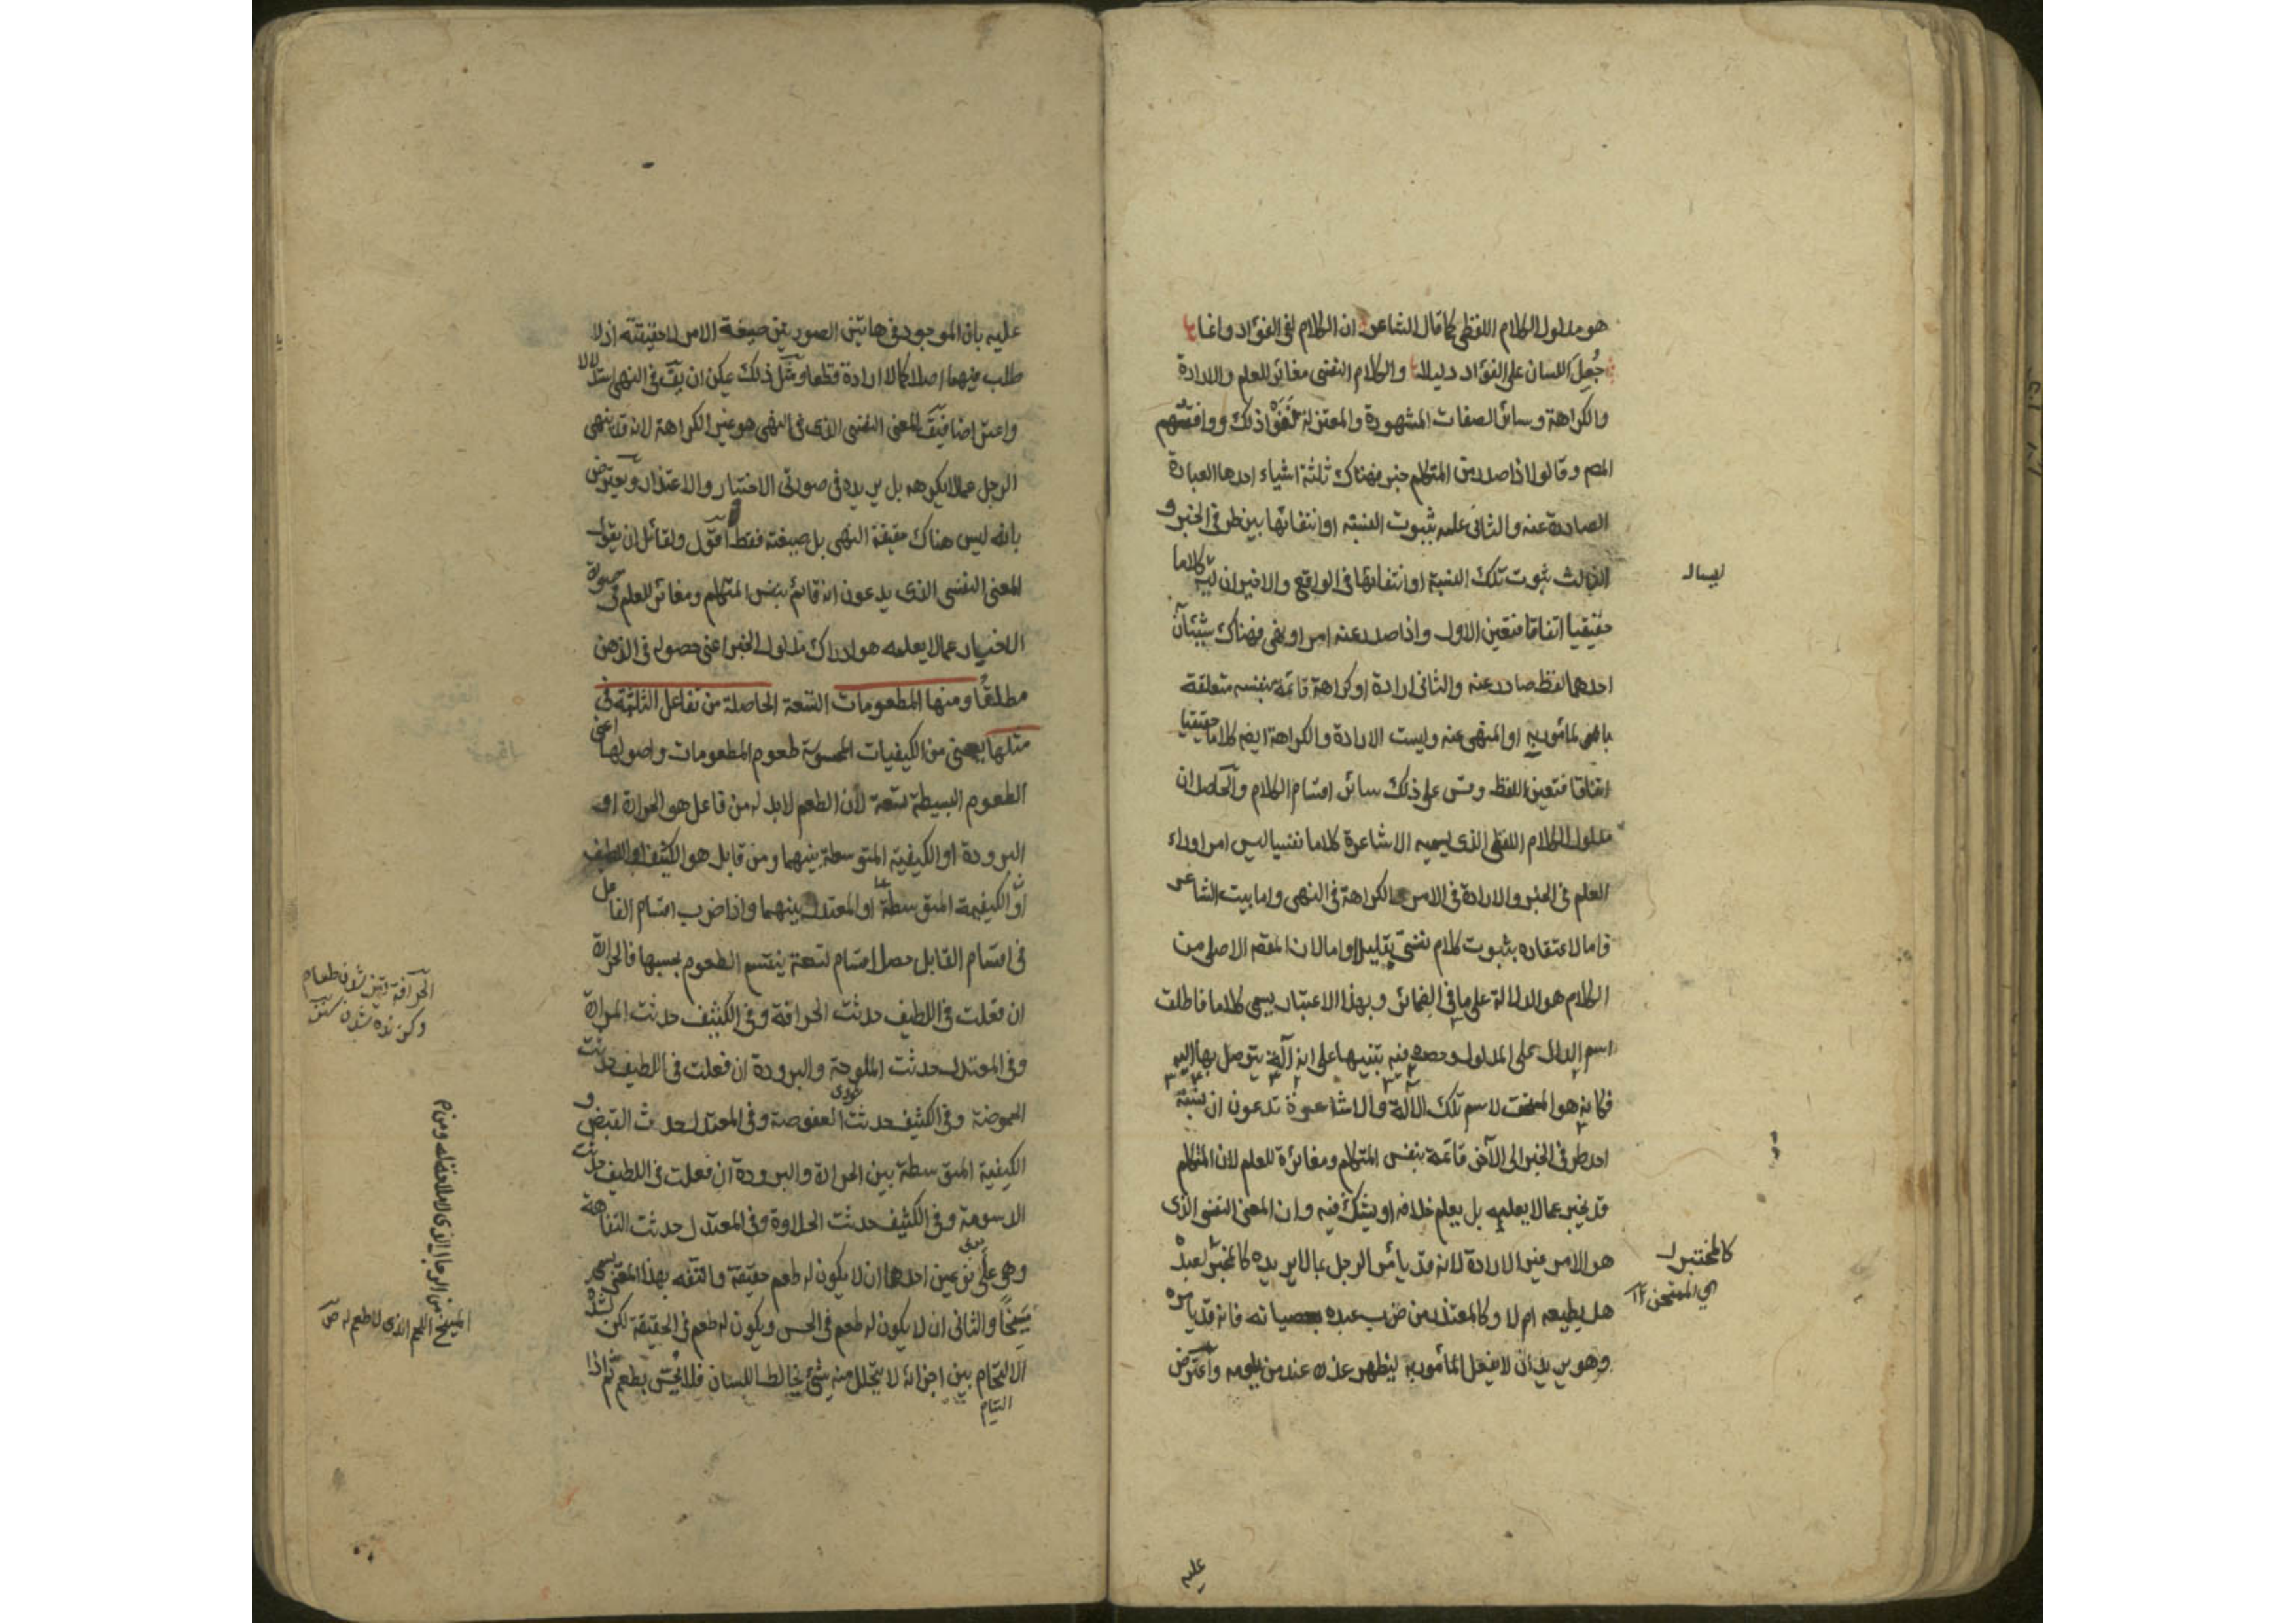 هو مدلول الكلام اللفظى كما قال الشاعر ان الكلام لفى الفؤاد وانما
جُعِلَ اللسان على الفؤاد دليلا والكلام النفسى مغائر للعلم والارادة
والكراهة وسائر الصفات المشهورة والمعتزلة نَفَوْا ذلك ووافقهم
المص وقالوا اذا صدر من المتكلم خبر فهناك ثلثة اشياء احدها العبارة
الصادرة عنه والثانى علمه بثبوت النسبة او انتفائها بين طرفى الخبر و
الثالث ثبوت تلك النسبة او انتفائها فى الواقع والاخيران ليسا كلاما
حقيقيا اتفاقا فتعين الاول واذا صدر عنه امر او نهى فهناك شيئان
احدهما لفظ صادر عنه والثانى ارادة او كراهة قائمة بنفسه متعلقة
بالمأمور به او المنهى عنه وليست الارادة والكراهة ايضه كلاما حقيقيا
اتفاقا فتعين اللفظ وقس على ذلك سائر اقسام الكلام والحاصل ان
مدلول الكلام اللفظى الذى يسميه الاشاعرة كلاما نفسيا ليس امرا وراء
العلم فى الخبر والارادة فى الامر والكراهة فى النهى واما بيت الشاعر
فاما لاعتقاده بثبوت كلام نفسى تقليدا واما لان المقصد الاصلى من
الكلام هو الدلالة على ما فى الضمائر وبهذا الاعتبار يسمى كلاما فاطلق
اسم الدال على المدلول وحصره فيه تنبيها على انه آلة يتوصل بها اليه
فكانه هو المستحق لاسم تلك الآلة والاشاعرة تدعون ان نسبة
احد طرفى الخبر الى الآخر قائمة بنفس المتكلم ومغائرة للعلم لان المتكلم
قد يخبر عما لا يعلمه بل يعلم خلافه او يشك فيه وان المعنى النفسى الذى
هو الامر غير الارادة لانه قد يأمر الرجل بما لا يريده كالمختبر لعبده
هل يطيعه ام لا وكالمعتذر من ضرب عبده بعصيانه فانه قد يامره
وهو يريد ان لا يفعل المأمور به ليظهر عذره عند من يلومه واعترض
كالمختبر
اى الممتحن ١٢
عليه
عليه بان الموجود فى هاتين الصورتين صيغة الامر لا حقيقته اذ لا
طلب فيهما اصلا كما لا ارادة قطعا ومثل ذلك يمكن ان يق فى النهى استدلالا
واعتراضا فيق المعنى النفسى الذى فى النهى هو غير الكراهة لانه قد ينهى
الرجل عما لا يكرهه بل يريده فى صورتى الاختبار والاعتذار ويعترض
بانه ليس هناك حقيقة النهى بل صيغته فقط اقول ولقائل ان يقول
المعنى النفسى الذى يدعون انه قائم بنفس المتكلم ومغائر للعلم فى صورة
الاخبار عما لا يعلمه هو ادراك مدلول الخبر اعنى حصوله فى الذهن
مطلقًا ومنها المطعومات التسعة الحاصلة من تفاعل الثلثة فى
مثلها يعنى من الكيفيات المحسوسة طعوم المطعومات واصولها اعنى
الطعوم البسيطة تسعة لأن الطعم لابد له من فاعل هو الحرارة او
البرودة او الكيفية المتوسطة بينهما ومن قابل هو الكثيف او اللطيف
او الكيفية المتوسطة او المعتدل بينهما واذا ضرب اقسام الفاعل
فى اقسام القابل حصل اقسام تسعة ينقسم الطعوم بحسبها فالحرارة
ان فعلت فى اللطيف حدثت الحرافة وفى الكثيف حدثت المرارة
وفى المعتدل حدثت الملوحة والبرودة ان فعلت فى اللطيف حدثت
الحموضة وفى الكثيف حدثت العفوصة وفى المعتدل حدث القبض و
الكيفية المتوسطة بين الحرارة والبرودة ان فعلت فى اللطيف حدثت
الدسومة وفى الكثيف حدثت الحلاوة وفى المعتدل حدثت التفاهة
وهى على نوعين احدهما ان لا يكون له طعم حقيقة والتفه بهذا المعنى يسمى
مَسِيخًا والثانى ان لا يكون له طعم فى الحس ويكون له طعم فى الحقيقة لكن لشدة
الالتحام بين اجزائه لا يتحلل منه شئ يخالط اللسان فلا يحس بطعمه ثم اذا
التيام
المسيخ من الرجال الذى لا ملاحة له ومن
اللحم الذى لا طعم له ص